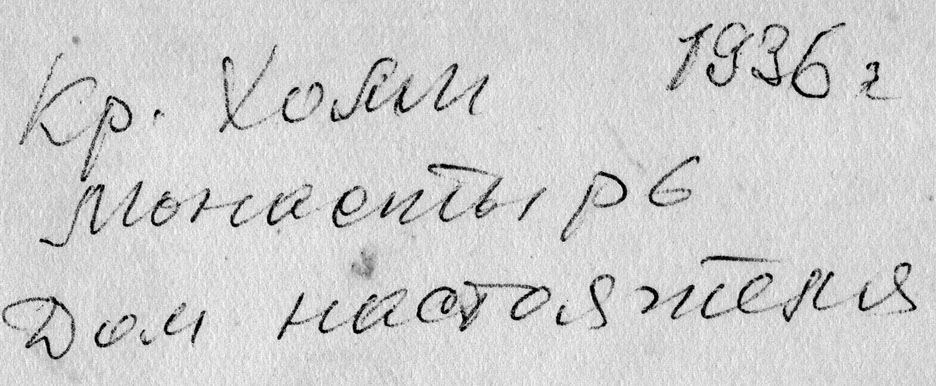 Кр. Хоями 1936 г
Монастырь
Дом настоятеля